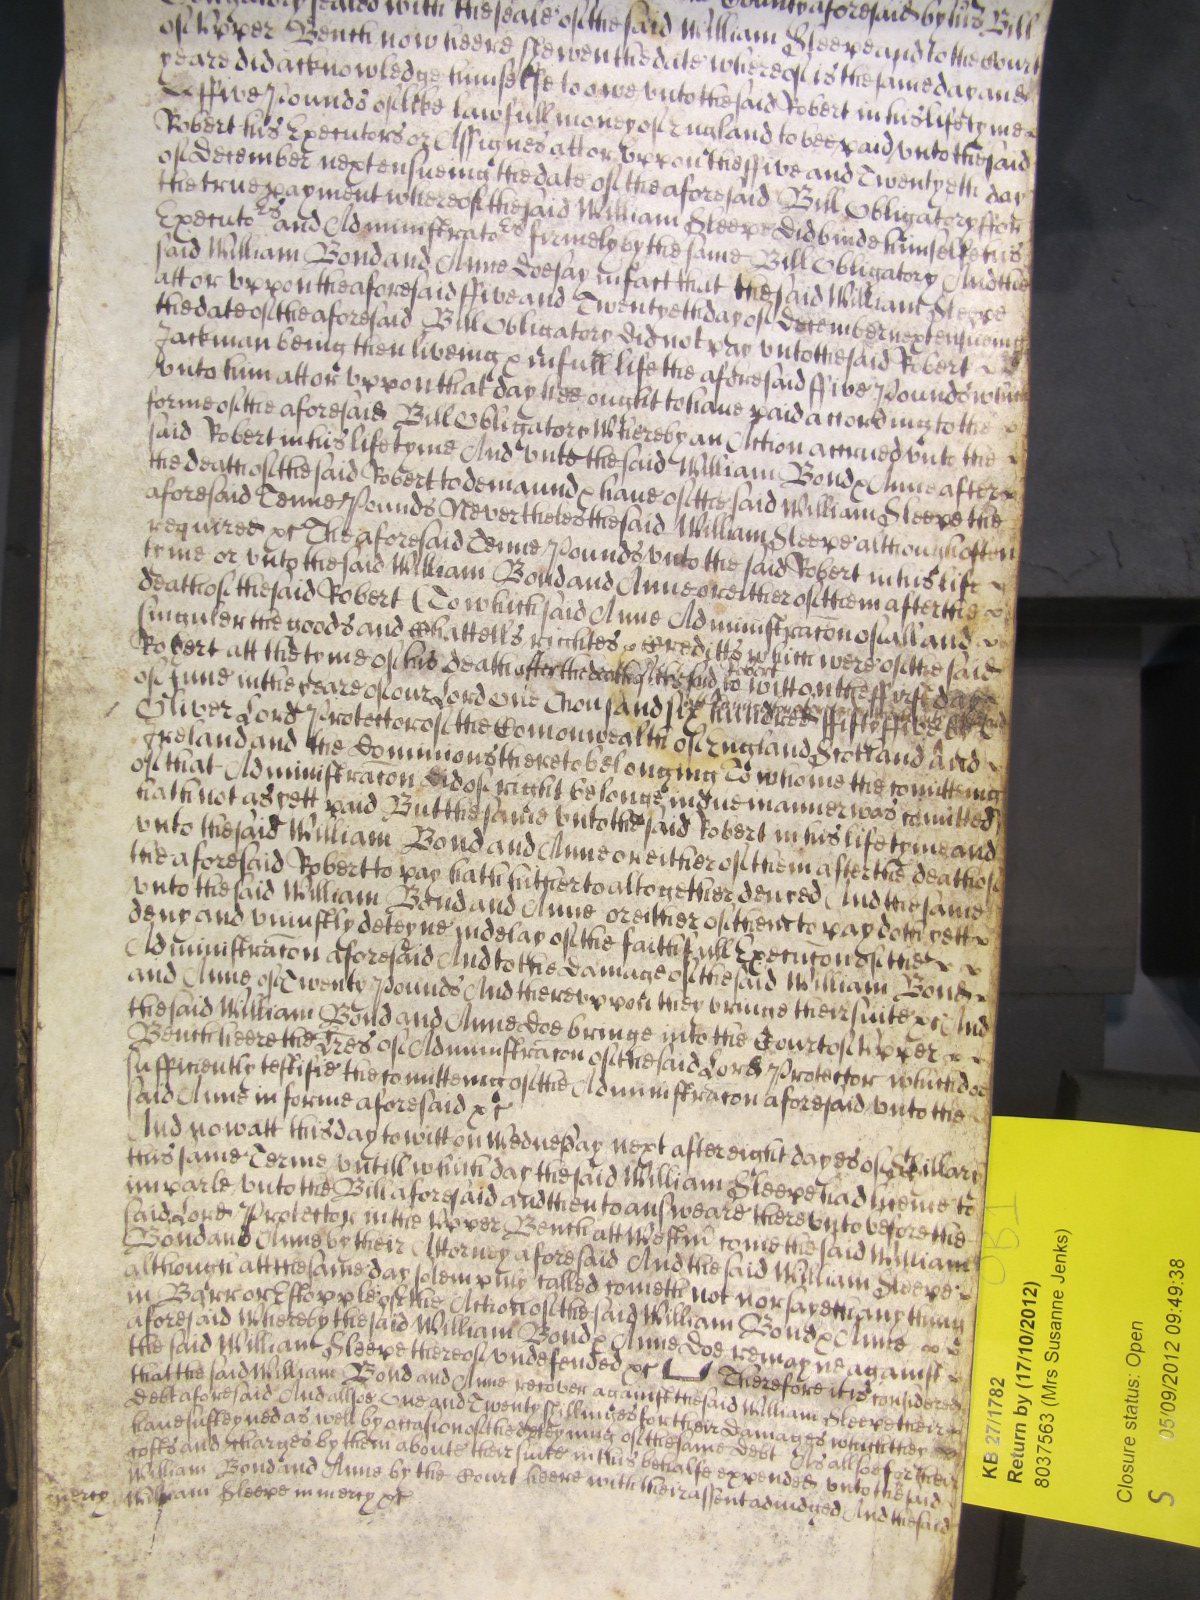 Obligatory sealed with the seale of the said William Sleepe and to the Court
of Upper Bench now heere shewen the date whereof is the same day and
yeare did acknowledge himselfe to owe unto the said Robert in his life tyme
ffive Pounds of like lawfull money of England to bee paid unto the said
Robert his Executors or Assignes att or uppon the ffive and Twentyeth day
of December next ensueing the date of the aforesaid Bill Obligatory ffor
the true payment whereof the said William Sleepe did binde himselfe his
Executors and Administrators firmely by the same Bill Obligatory And the
said William Bond and Anne doe say in fact that the said William Sleepe
att or uppon the aforesaid ffive and Twentyeth day of December next ensueing
the date of the aforesaid Bill Obligatory did not pay unto the said Robert
Jackman being then liveing & in full life the aforesaid ffive Pounds which
unto him att or uppon that day hee ought to have paid according to the
forme of the aforesaid Bill Obligatory Whereby an Action accrued unto the
said Robert in his life tyme And unto the said William Bond & Anne after
the death of the said Robert to demaund & have of the said William Sleepe the
aforesaid Tenne Pounds Nevertheles the said William Sleepe although often
required &c The aforesaid Tenne Pounds unto the said Robert in his life
tyme or unto the said William Bond and Anne or either of them after the
death of the said Robert (To which said Anne Administracon of all and
singuler the goods and Chattells rightes & Creditts which were of the said
Robert att the tyme of his death after the death of the said Robert to witt on the ffirst day
of June in the yeare of our Lord One Thousand six hundred ffifty ffive by
Oliver Lord Protector of the Comonwealth of England Scotland and
Ireland and the Dominions thereto belonging To whome the comitteing
of that Administracon did of right belonge in due manner was comitted)
hath not as yett paid But the same unto the said Robert in his life tyme and
unto the said William Bond and Anne or either of them after the death of
the aforesaid Robert to pay hath hitherto altogether denyed And the same
unto the said William Bond and Anne or either of them to pay doth yett
deny and uniustly deteyne in delay of the faithfull Execucon of the
Administracon aforesaid And to the damage of the said William Bond
and Anne of Twenty Pounds And thereuppon they bringe their suite &c And
the said William Bond and Anne doe bringe into the Court of Upper
Bench heere the Lres of Administracon of the said Lord Protector which doe
sufficiently testifie the comitteing of the Administracon aforesaid unto the
said Anne in forme aforesaid &c
And now att this day to witt on Wednesday next after eight dayes of Hillary
this same Terme untill which day the said William Sleepe had lycence to
imparle unto the Bill aforesaid and then to answeare thereunto before the
said Lord Protector in the Upper Bench att Westm come the said William
Bond and Anne by their Attorney aforesaid And the said William Sleepe
although att the same day solempnly called cometh not nor sayeth any thing
in Barr or Estopple of the Action of the said William Bond & Anne
aforesaid Whereby the said William Bond & Anne doe remayne against
the said William Sleepe thereof undefended &c Therefore it is considered
that the said William Bond and Anne recover against the said William Sleepe their
debt aforesaid And allsoe One and Twenty shillinges for their damages which they
have susteyned as well by occasion of the deteyning of the same debt As allsoe for their
costs and charges by them about their suite in this behalfe expended unto the said
William Bond and Anne by the Court heere with their assent adiudged And the said
mercy William Sleepe in mercy &c
OB1
KB 27/1782
Return by (17/10/2012)
8037563 (Mrs Susanne Jenks)
Closure status: Open
S 05/09/2012 09:49:38